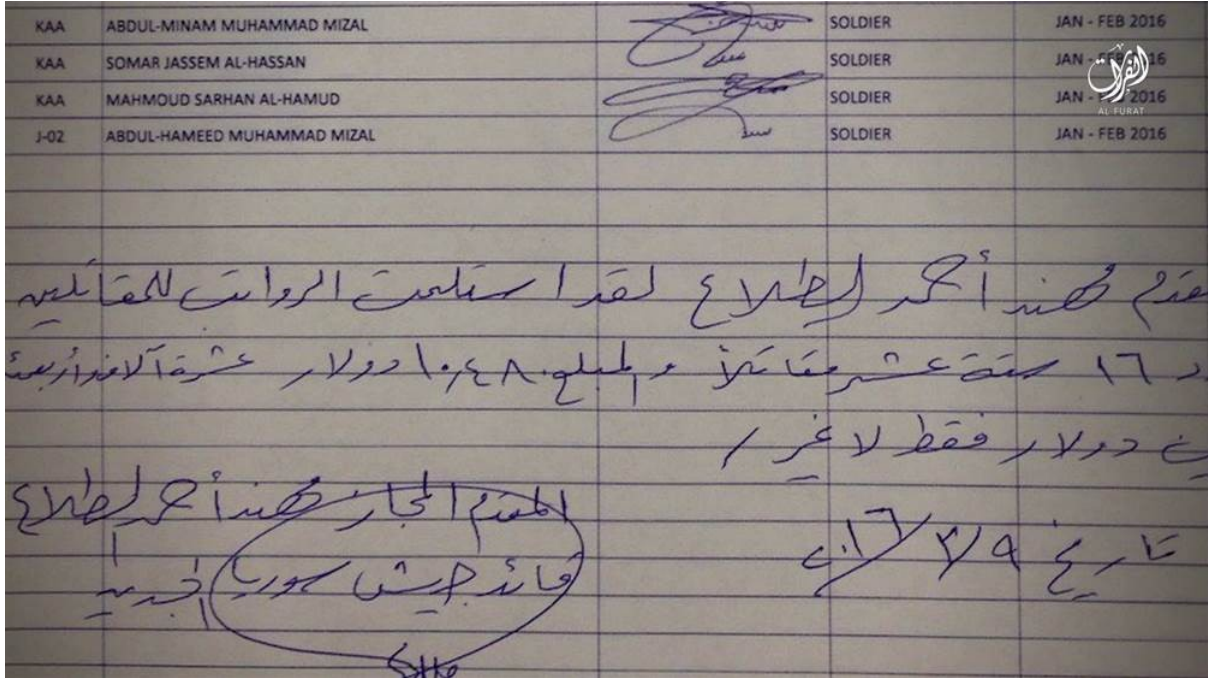 KAA ABDUL-MINAM MUHAMMAD MIZAL SOLDIER JAN - FEB 2016
KAA SOMAR JASSEM AL-HASSAN SOLDIER JAN - FEB 2016
KAA MAHMOUD SARHAN AL-HAMUD SOLDIER JAN - FEB 2016
J-02 ABDUL-HAMEED MUHAMMAD MIZAL SOLDIER JAN - FEB 2016
الفرات
AL-FURAT
مهند أحمد الطلاع لقد استلمت الرواتب للمقاتلين
١٦ ستة عشر مقاتلاً والمبلغ ١٠٤٨٠ دولار عشرة آلاف وأربعمئة
دولار فقط لا غير /
المقدم المجاز مهند أحمد الطلاع
تاريخ ٢٠١٦/٣/٩
قائد جيش سوريا الجديد